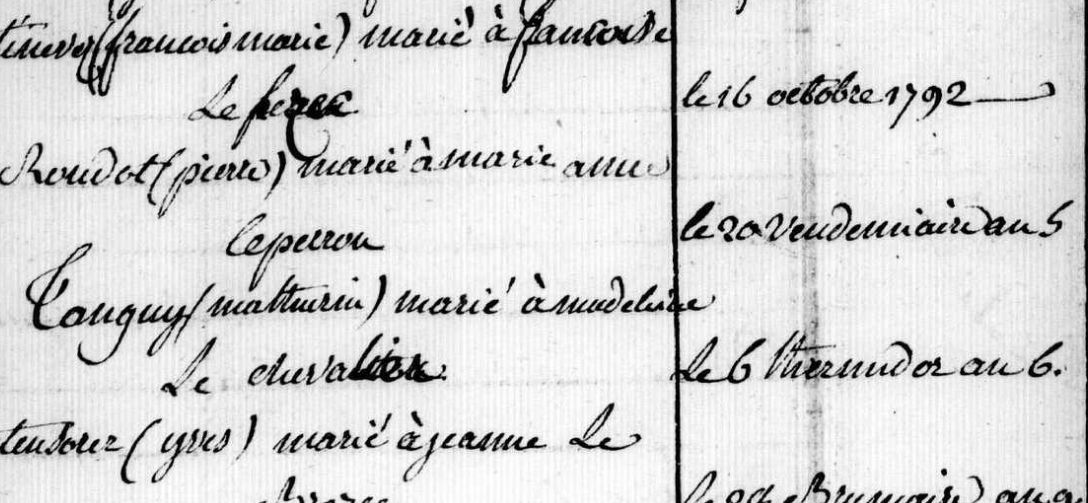 (francois marie) marié à francoise
Le
le 16 octobre 1792
Roudot (pierre) marié à marie anne
leperron
le 20 vendemiaire an 5
Tanguy (mathurin) marié à madeleine
Le chevalier
le 6 thermidor an 6.
(yves) marié à jeanne Le
Brumaire an